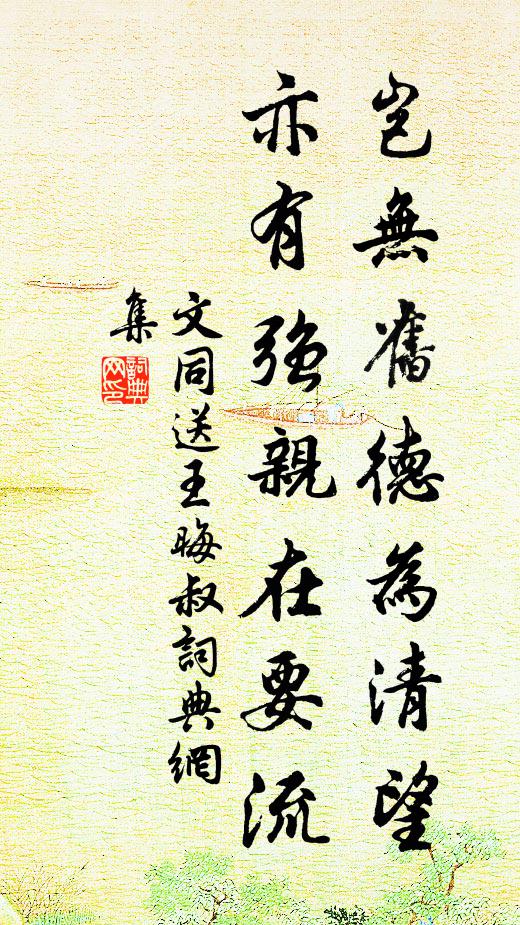 豈無舊德為清望
亦有強親在要流
文同送王晦叔詞典網
集
詞典
网印